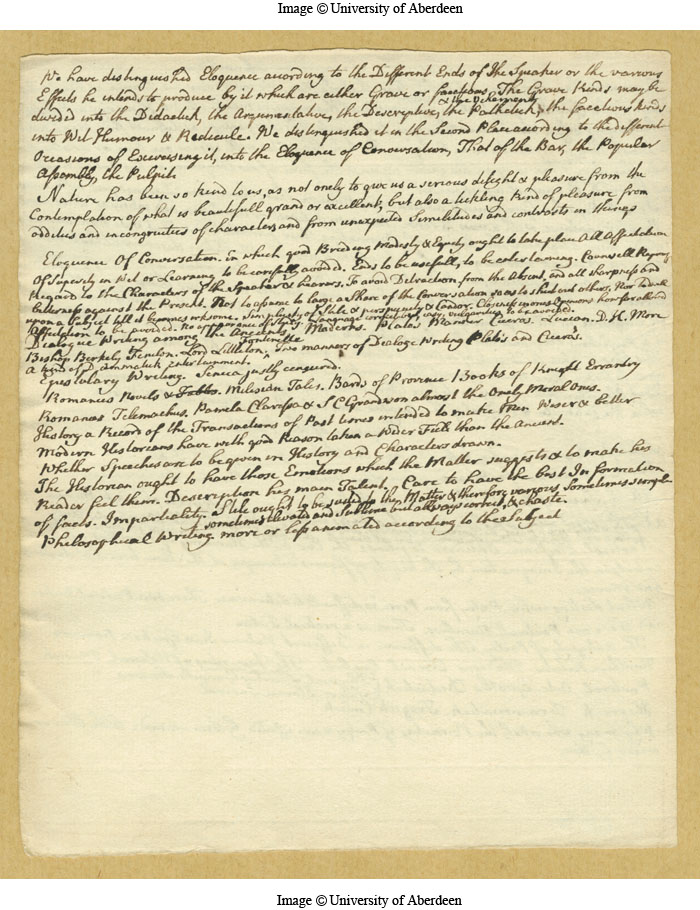 Image © University of Aberdeen
We have distinguished Eloquence according to the Different Ends of the Speaker or the various
Effects he intends to produce by it which are either Grave or facetious. The Grave Kinds may be
& the Vehement
divided into the Didactick, the Argumentative, the Descriptive, the Pathetick, the facetious kinds
into Wit Humour & Redicule. We distinguished it in the Second Place according to the different
Occasions of Exercising it, into the Eloquence of Conversation, That of the Bar, the Popular
Assembly, the Pulpit.
Nature has been so kind to us, as not onely to give us a serious delight & pleasure from the
Contemplation of what is beautifull grand or excellent, but also a tickling kind of pleasure from
oddities and incongruities of characters and from unexpected Similitudes and contrasts in things
Eloquence Of Conversation. in which good Breeding Modesty & Equity ought to take place All Affectation
Of Superity in Wit or Learning to be carefully avoided. Ends to be usefull, to be entertaining. Counsell Reproof
Regard to the Characters of the Speaker & hearers. To avoid Detraction from the Absent, and all sharpness and
bitterness against the Present. Not to assume to large a Share of the Conversation so as to shut out others, Nor to dwell
upon a Subject till it becomes irksome. Simplicity of Stile & perspicuity & Candor.
Affectation to be avoided. No appearance of Study. Language correct
Dialogue Writing among the Ancients Moderns. Platos Manner Ciceros. Lucian. D. H. More
Fontinelle
Bishop Berkely Fenelon. Lord Littleton, Two manners of Dialoge Writing Plato's and Cicero's.
A kind of Drammatick Entertainment.
Epistolary Writing. Seneca justly censured.
Romances Novels & Fables. Milesian Tales. Bards of Province Books of Knight Errantry
Romances Telemachus. Pamela Clarissa & S C Grandison almost the Onely Moral Ones.
History a Record of the Transactions of Past times intended to make Men Wiser & better
Modern Historians have with good Reason taken a Wider Field than the Ancient.
Whether Speeches are to be given in History and Characters drawn.
The Historian ought to have those Emotions which the Matter suggests & to make his
Reader feel them. Description his main Talent. Care to have the best Information
of facts. Impartiality. Stile ought to be suited to the Matter & therefore various Sometimes simple
sometimes elevated and Sublime but allways correct, & chaste.
Philosophical Writing more or less animated according to the Subject
Image © University of Aberdeen